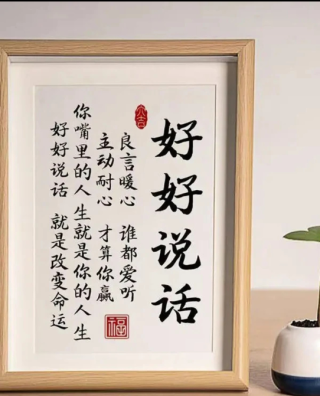 好好说话
良言暖心 谁都爱听
主动耐心 才算你赢
你嘴里的人生就是你的人生
好好说话 就是改变命运
福